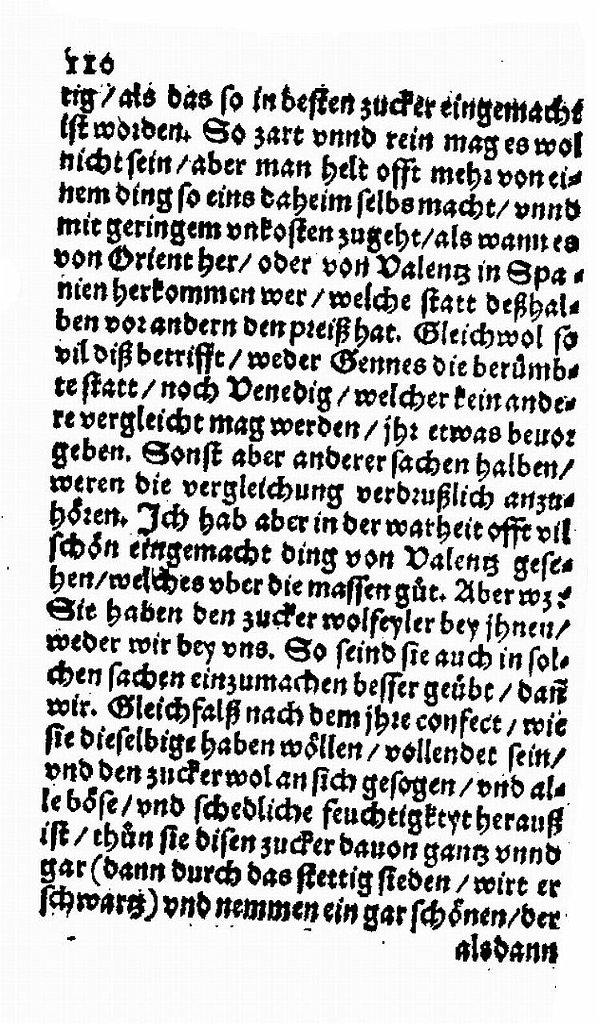 110
tig / als das so in besten zucker eingemacht
ist worden. So zart vnnd rein mag es wol
nicht sein / aber man helt offt mehr von ei⸗
nem ding so eins daheim selbs macht / vnnd
mit geringem vnkosten zugeht / als wann es
von Orient her / oder von Valentz in Spa⸗
nien herkommen wer / welche statt deßhal⸗
ben vor andern den preiß hat. Gleichwol so
vil diß betrifft / weder Gennes die berůmb⸗
te statt / noch Venedig / welcher kein ande⸗
re vergleicht mag werden / jhr etwas beuor
geben. Sonst aber anderer sachen halben /
weren die vergleichung verdrußlich anzu⸗
hören. Ich hab aber in der warheit offt vil
schön eingemacht ding von Valentz gese⸗
hen / welches vber die massen gůt. Aber wz?
Sie haben den zucker wolfeyler bey jhnen /
weder wir bey vns. So seind sie auch in sol⸗
chen sachen einzumachen besser geübt / dañ
wir. Gleichfalß nach dem jhre confect / wie
sie dieselbige haben wöllen / vollendet sein /
vnd den zucker wol an sich gesogen / vnd al⸗
le böse / vnd schedliche feuchtigktyt herauß
ist / thůn sie disen zucker dauon gantz vnnd
gar (dann durch das stettig sieden / wirt er
schwartz) vnd nemmen ein gar schönen / der
alsdann